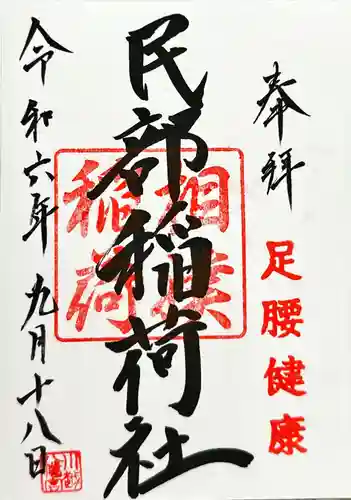 奉拝
足腰健康
民部稲荷社
相模
稲荷
令和六年九月十八日